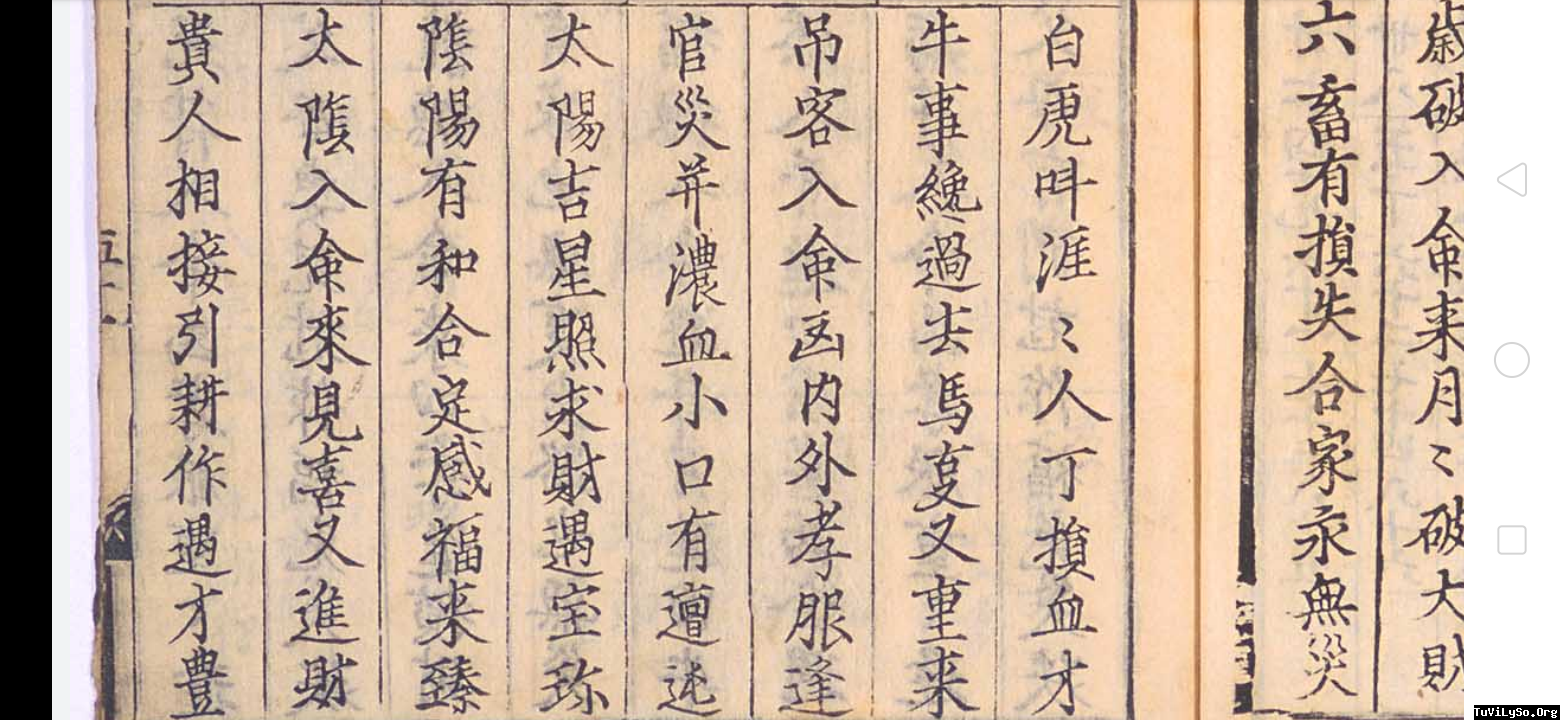 歲破入命来月〻破大財
六畜有損失合家永無災
白虎呌涯〻人丁損血才
牛事纔過去馬变又重来
吊客入命凶内外孝服逢
官災并濃血小口有邅迍
太陽吉星照求財遇宝珎
陰陽有和合定感福来臻
太陰入命來見喜又進財
貴人相接引耕作遇才豊
TuViLySo.Org